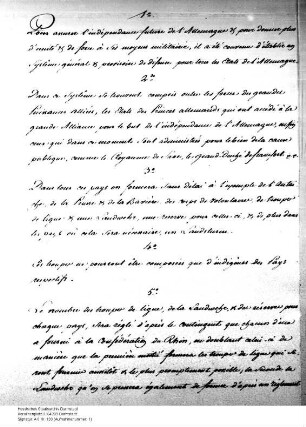 1º
Pour assurer l'indépendance future de l'Allemagne & pour donner plus
d'unité & de force à ses moyens militaires, il a été convenu d'établir un
système général & provisoire de défense pour tous les Etats de l'Allemagne.
2do
Dans ce système se trouvent compris outre les forces des grandes
Puissances alliées, les Etats des Princes allemands qui ont accédé à la
grande Alliance pour le but de l'indépendance de l'Allemagne,
que dans ce moment sont administrés pour le bien de la cause
publique, comme le Royaume de Saxe, le Grand-Duché de Francfort &c.
3º
Dans tous ces pays on formera sans délai à l'exemple de l'Autri-
che, de la Prusse & de la Bavière des corps de volontaires, de troupes
de ligne & une Landwehr, une réserve pour celles-ci, & de plus dans
les pays où cela sera nécessaire, un Landsturm.
4º
Les troupes ne pourront être composées que d'indigènes des Pays
respectifs.
5º
Le nombre des troupes de ligne, de la Landwehr, & du réserve pour
chaque pays, sera réglé d'après le contingent que chacun d'eux
a fourni à la Confédération du Rhin, en doublant celui-ci de
manière que la première moitié formera les troupes de ligne qui se-
ront fournies aussitôt & le plus promptement possible, la seconde la
Landwehr qu'on s'occupera également de former d'après un règlement